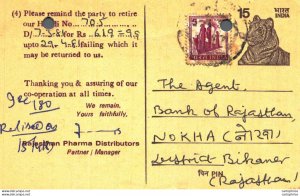 (4) Please remind the party to retire
our Hundi No 705
D/ 7-5-81 for Rs 619=98
upto 29-4-81 failing which it
may be returned to us.
Thanking you & assuring of our
co-operation at all times.
We remain,
Yours faithfully,
Rajasthan Pharma Distributors
Partner / Manager
15
भारत
INDIA
The Agent,
Bank of Rajasthan
NOKHA (नोखा)
District Bikaner
पिन PIN
(Rajasthan)